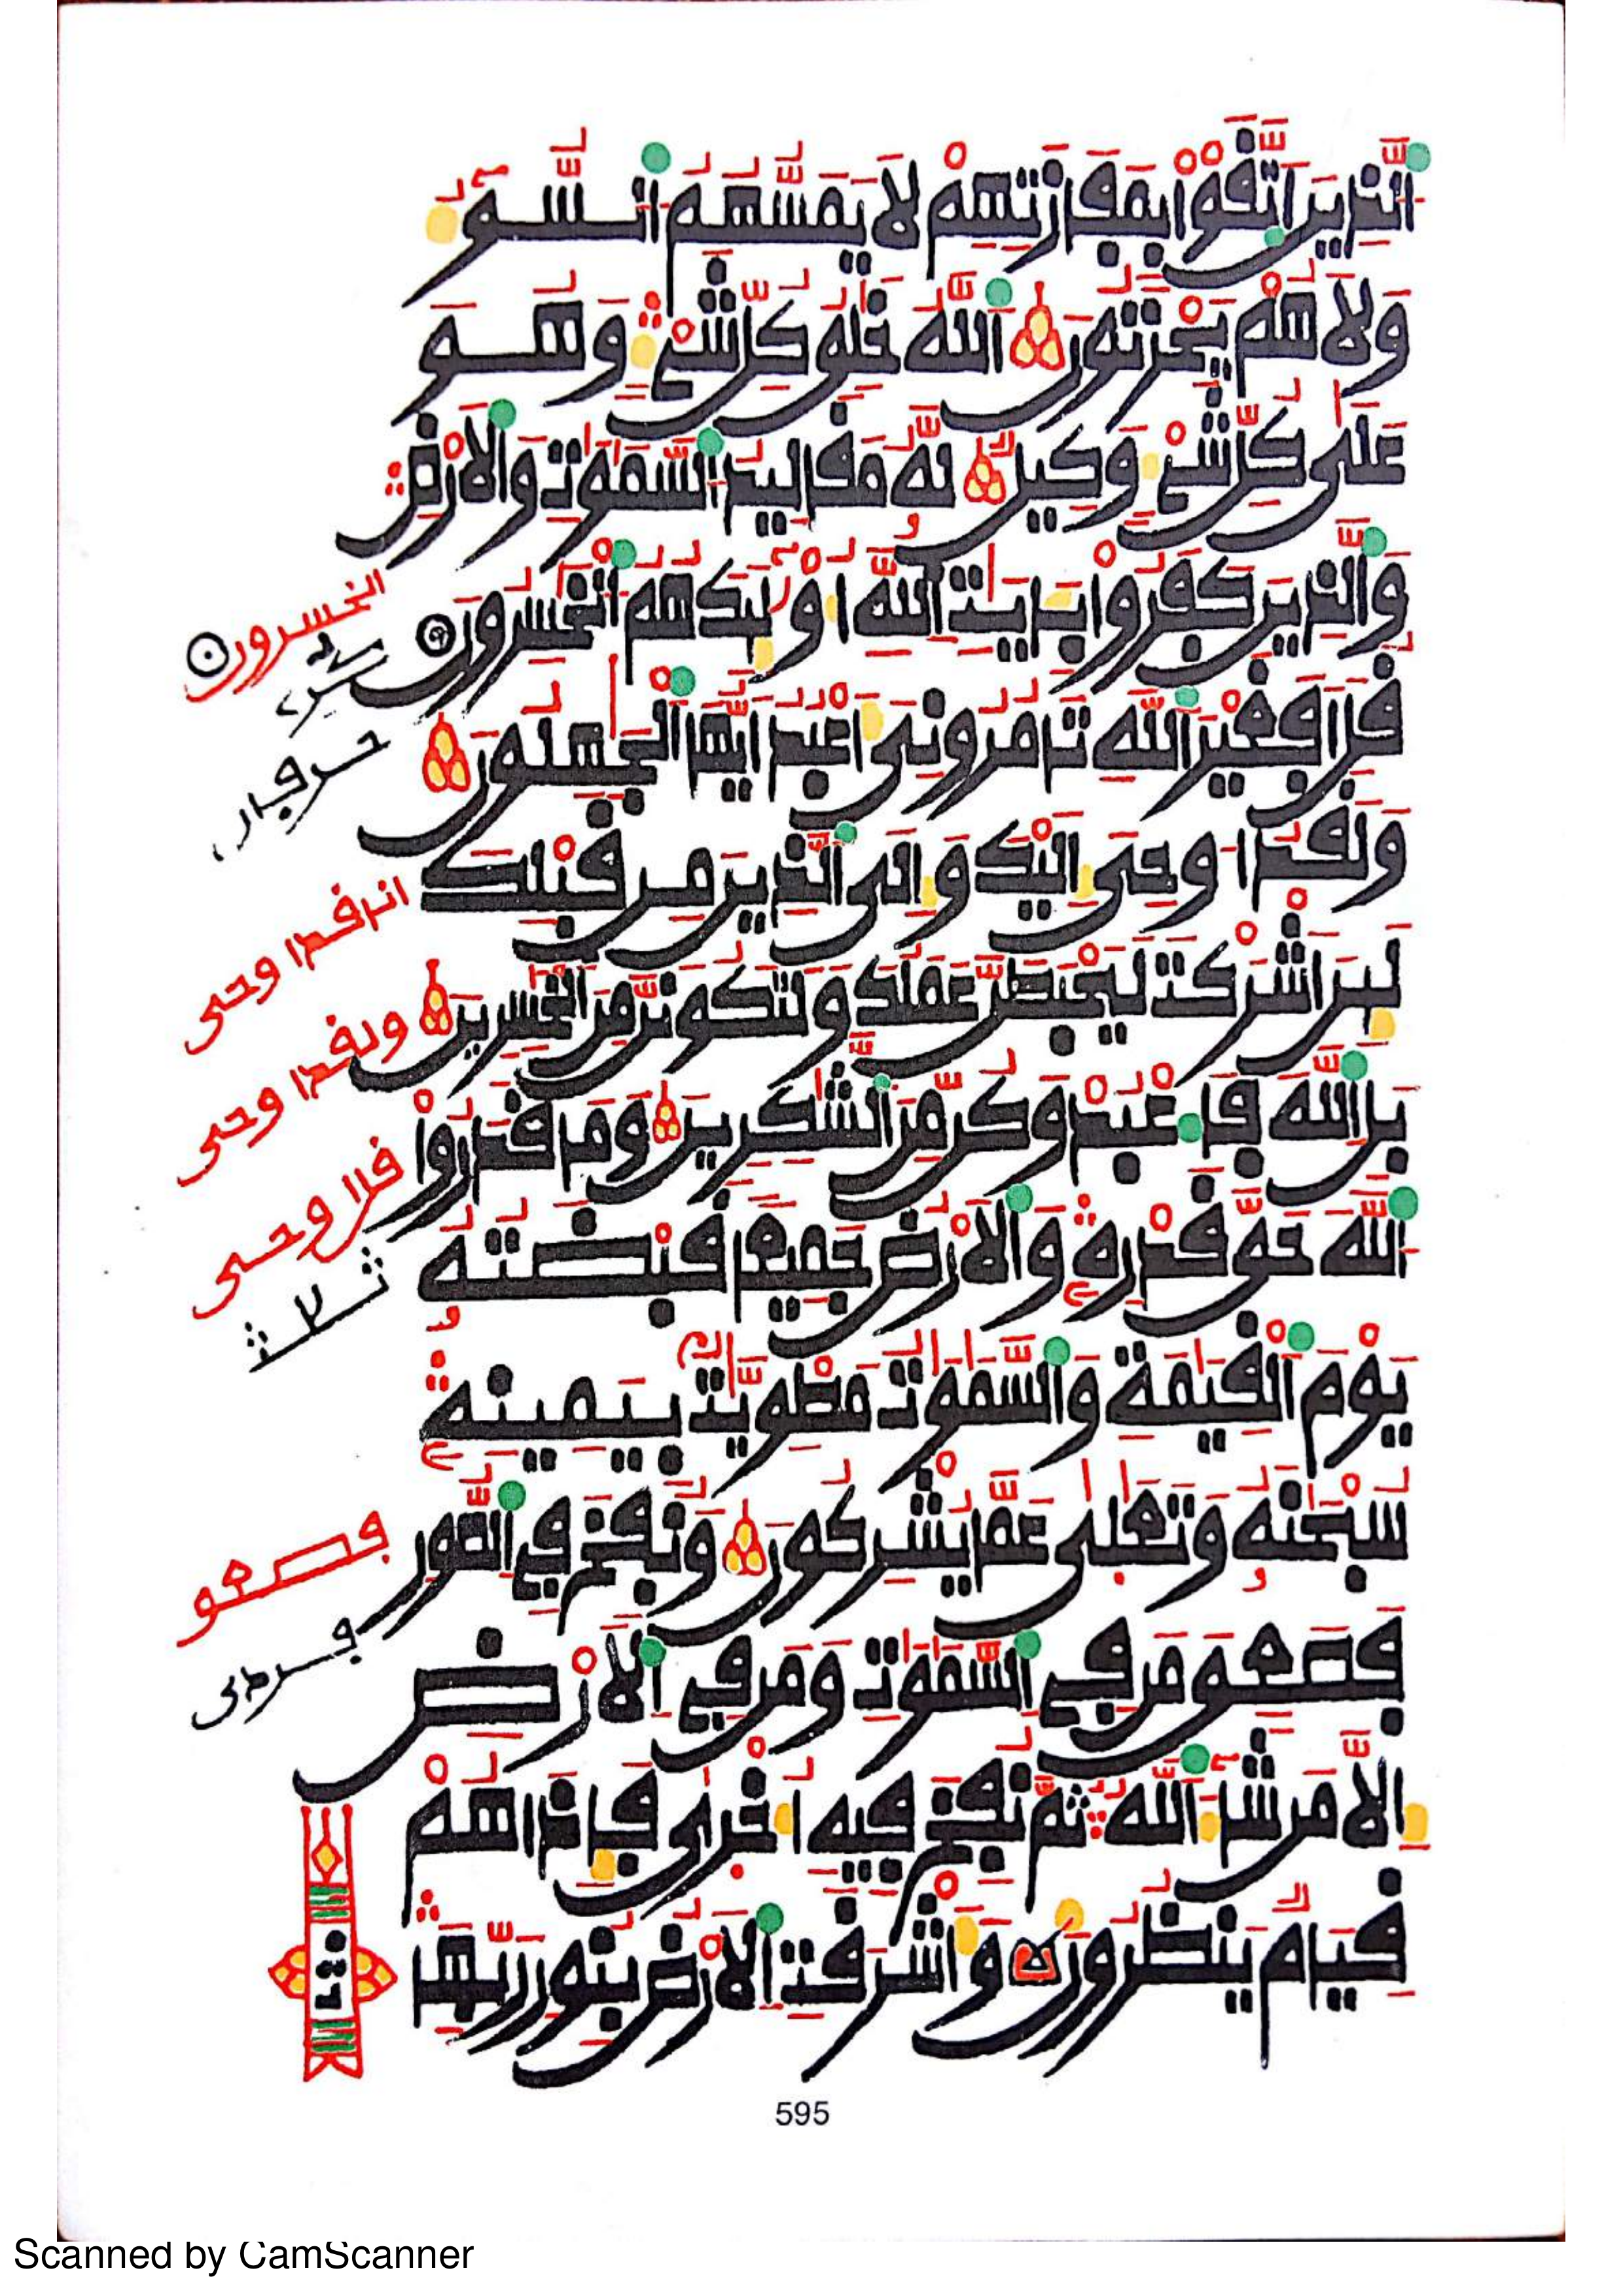 الذين اتقوا بمفازتهم لا يمسهم السوء
ولا هم يحزنون الله خلق كل شيء وهو
على كل شيء وكيل له مقاليد السموت والارض
والذين كفروا بءايت الله اولئك هم الخسرون
الخسرون
قل افغير الله تامروني اعبد ايها الجهلون
ولقد اوحي اليك والى الذين من قبلك
انا قد اوحي
لئن اشركت ليحبطن عملك ولتكونن من الخسرين
ولقد اوحي
بل الله فاعبد وكن من الشكرين وما قدروا
قل اوحي
الله حق قدره والارض جميعا قبضته
يوم القيمة والسموت مطويت بيمينه
سبحنه وتعلى عما يشركون ونفخ في الصور
فصعق
فصعق من في السموت ومن في الارض
الا من شاء الله ثم نفخ فيه اخرى فاذا هم
قيام ينظرون واشرقت الارض بنور ربها
595
Scanned by CamScanner